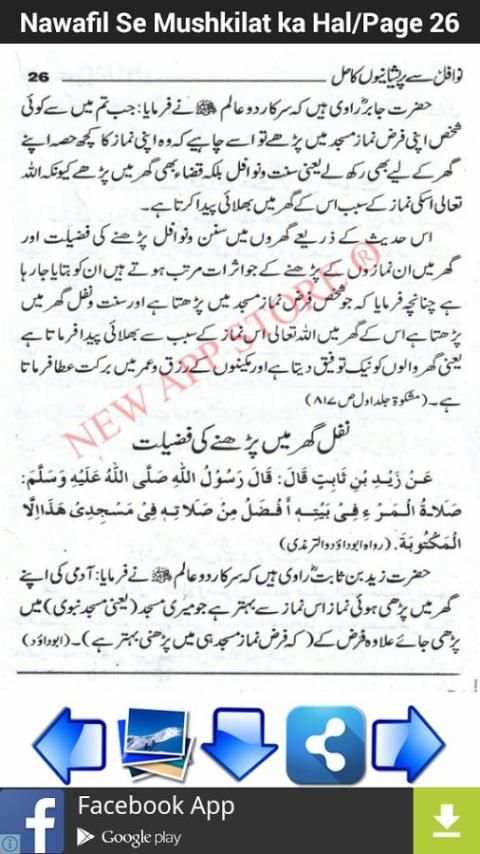 Nawafil Se Mushkilat ka Hal/Page 26
نوافل سے پریشانیوں کا حل
26
حضرت جابرؓ راوی ہیں کہ سرکار دو عالم ﷺ نے فرمایا: جب تم میں سے کوئی
شخص اپنی فرض نماز مسجد میں پڑھے تو اسے چاہیے کہ وہ اپنی نماز کا کچھ حصہ اپنے
گھر کے لیے بھی رکھ لے یعنی سنت ونوافل بلکہ قضاء بھی گھر میں پڑھے کیونکہ اللہ
تعالی اسکی نماز کے سبب اس کے گھر میں بھلائی پیدا کرتا ہے۔
اس حدیث کے ذریعے گھروں میں سنن ونوافل پڑھنے کی فضیلات اور
گھر میں ان نمازوں کے پڑھنے کے جو اثرات مرتب ہوتے ہیں ان کو بتایا جارہا
ہے چنانچہ فرمایا کہ جو شخص فرض نماز مسجد میں پڑھتا ہے اور سنت ونفل گھر میں
پڑھتا ہے اس کے گھر میں اللہ تعالی اس نماز کے سبب سے بھلائی پیدا فرماتا ہے
یعنی گھر والوں کو نیک توفیق دیتا ہے اور مکینوں کے رزق وعمر میں برکت عطا فرماتا
ہے۔ (مشکوۃ جلد اول ص ۸۱۷)
NEW APP STORE ®
نفل گھر میں پڑھنے کی فضیلات
عَنْ زَيْدِ بْنِ ثَابِتٍ قَالَ: قَالَ رَسُوْلُ اللهِ صَلَّى اللهُ عَلَيْهِ وَسَلَّمَ:
صَلَاةُ الْمَرْءِ فِىْ بَيْتِهِ أَفْضَلُ مِنْ صَلَاتِهِ فِىْ مَسْجِدِىْ هٰذَا اِلَّا
الْمَكْتُوْبَةَ. (رواہ ابوداؤد والترمذی)
حضرت زید بن ثابتؓ راوی ہیں کہ سرکار دو عالم ﷺ نے فرمایا: آدمی کی اپنے
گھر میں پڑھی ہوئی نماز اس نماز سے بہتر ہے جو میری مسجد (یعنی مسجد نبوی) میں
پڑھی جائے علاوہ فرض کے (کہ فرض نماز مسجد ہی میں پڑھنی بہتر ہے)۔ (ابوداؤد)
Facebook App
Google play